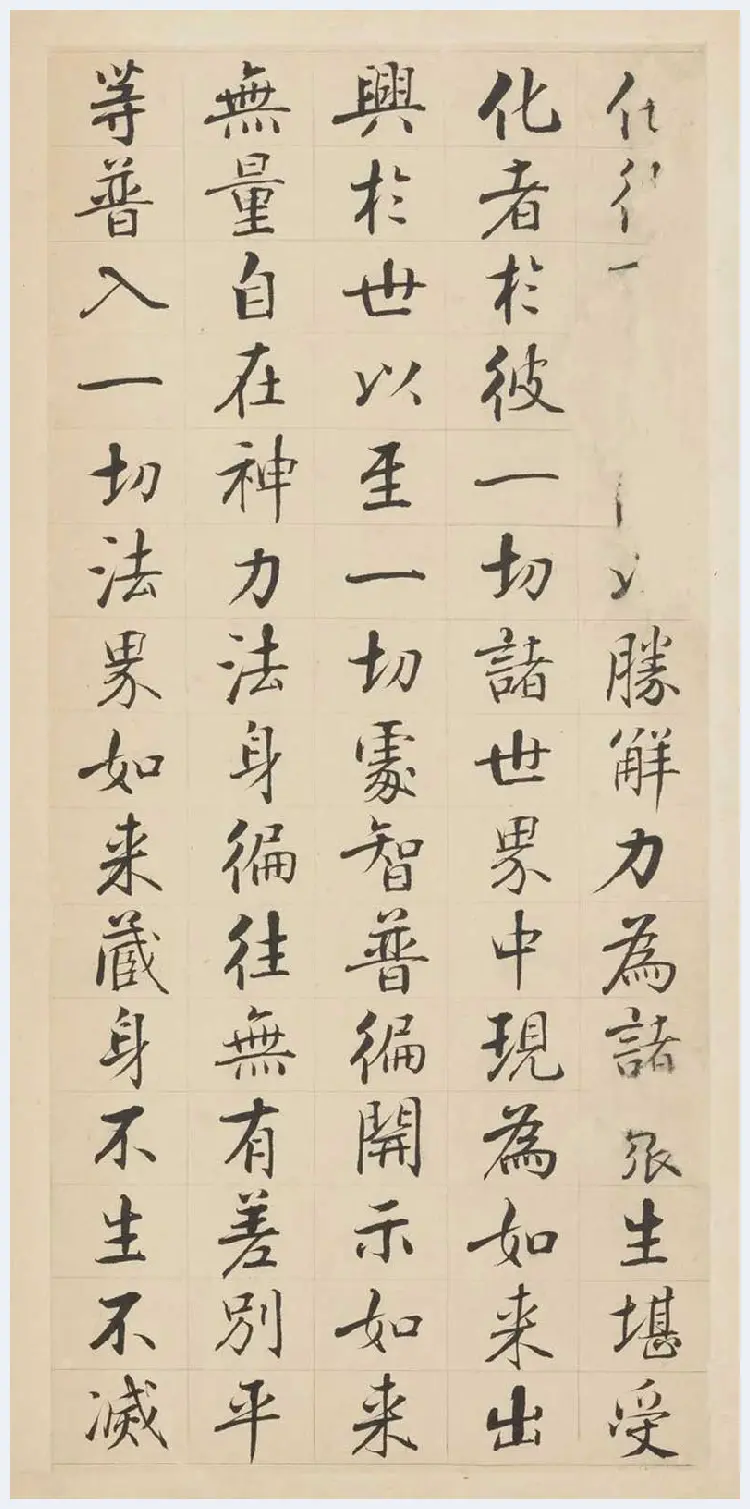 勝解力為諸生堪受
化者於彼一切諸世界中現為如来出
興於世以至一切處智普徧開示如来
無量自在神力法身徧往無有差別平
等普入一切法界如来蔵身不生不滅